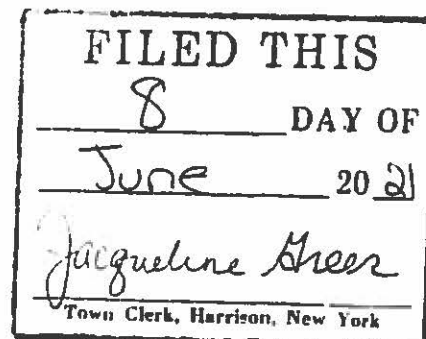 FILED THIS
8 DAY OF
June 20 21
Jacqueline Greer
Town Clerk, Harrison, New York